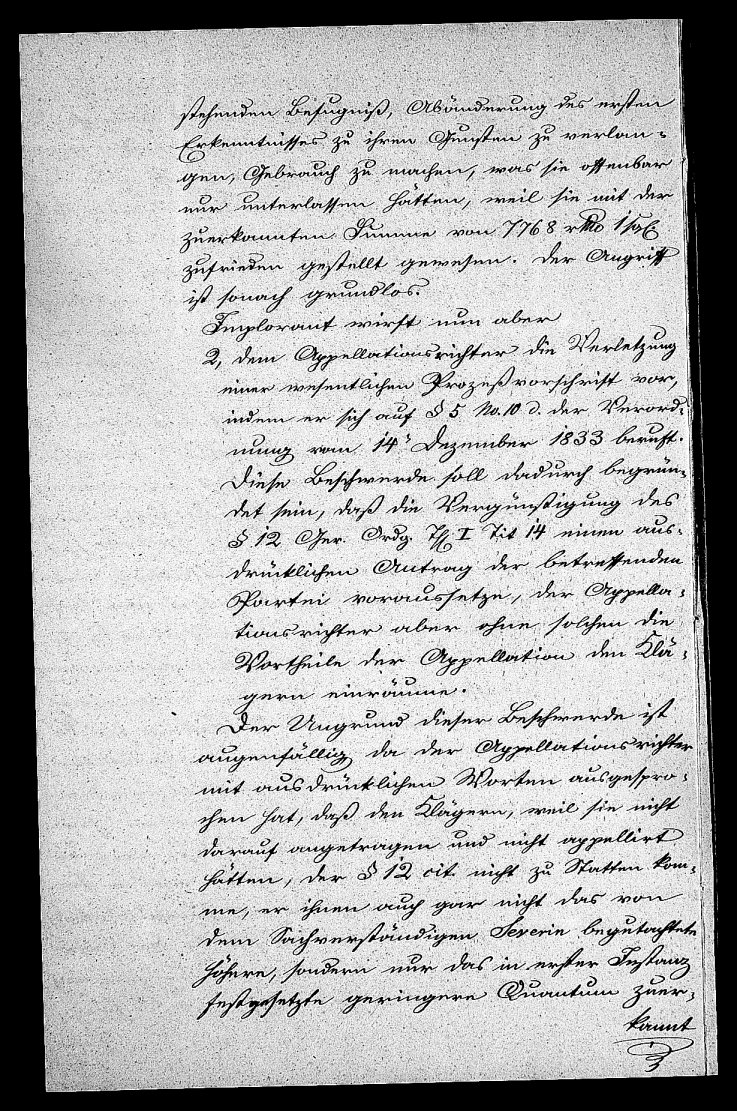 stehenden Befugniß, Abänderung des ersten
Erkenntnisses zu ihren Gunsten zu verlan-
gen, Gebrauch zu machen, was sie offenbar
nur unterlassen hätten, weil sie mit der
zuerkannten Summe von 7768 rthlr 1 sgl
zufrieden gestellt gewesen. Der Angriff
ist sonach grundlos.
Implorant wirft nun aber
2, dem Appellationsrichter die Verletzung
einer wesentlichen Prozeßvorschrift vor,
indem er sich auf § 5 No. 10 d. der Verord-
nung vom 14 Dezember 1833 beruft.
Diese Beschwerde soll dadurch begrün-
det sein, daß die Vergünstigung des
§ 12 Ger. Ordg. Th I Tit 14 einen aus-
drücklichen Antrag der betreffenden
Partei voraussetze, der Appella-
tionsrichter aber ohne solchen die
Vortheile der Appellation den Klä-
gern einräume.
Der Ungrund dieser Beschwerde ist
augenfällig da der Appellationsrichter
mit ausdrücklichen Worten ausgespro-
chen hat, daß den Klägern, weil sie nicht
darauf angetragen und nicht appellirt
hätten, der § 12 cit. nicht zu Statten kom-
me, er ihnen auch gar nicht das von
dem Sachverständigen Severin begutachtete
höhere, sondern nur das in erster Instanz
festgesetzte geringere Quantum zuer-
kannt